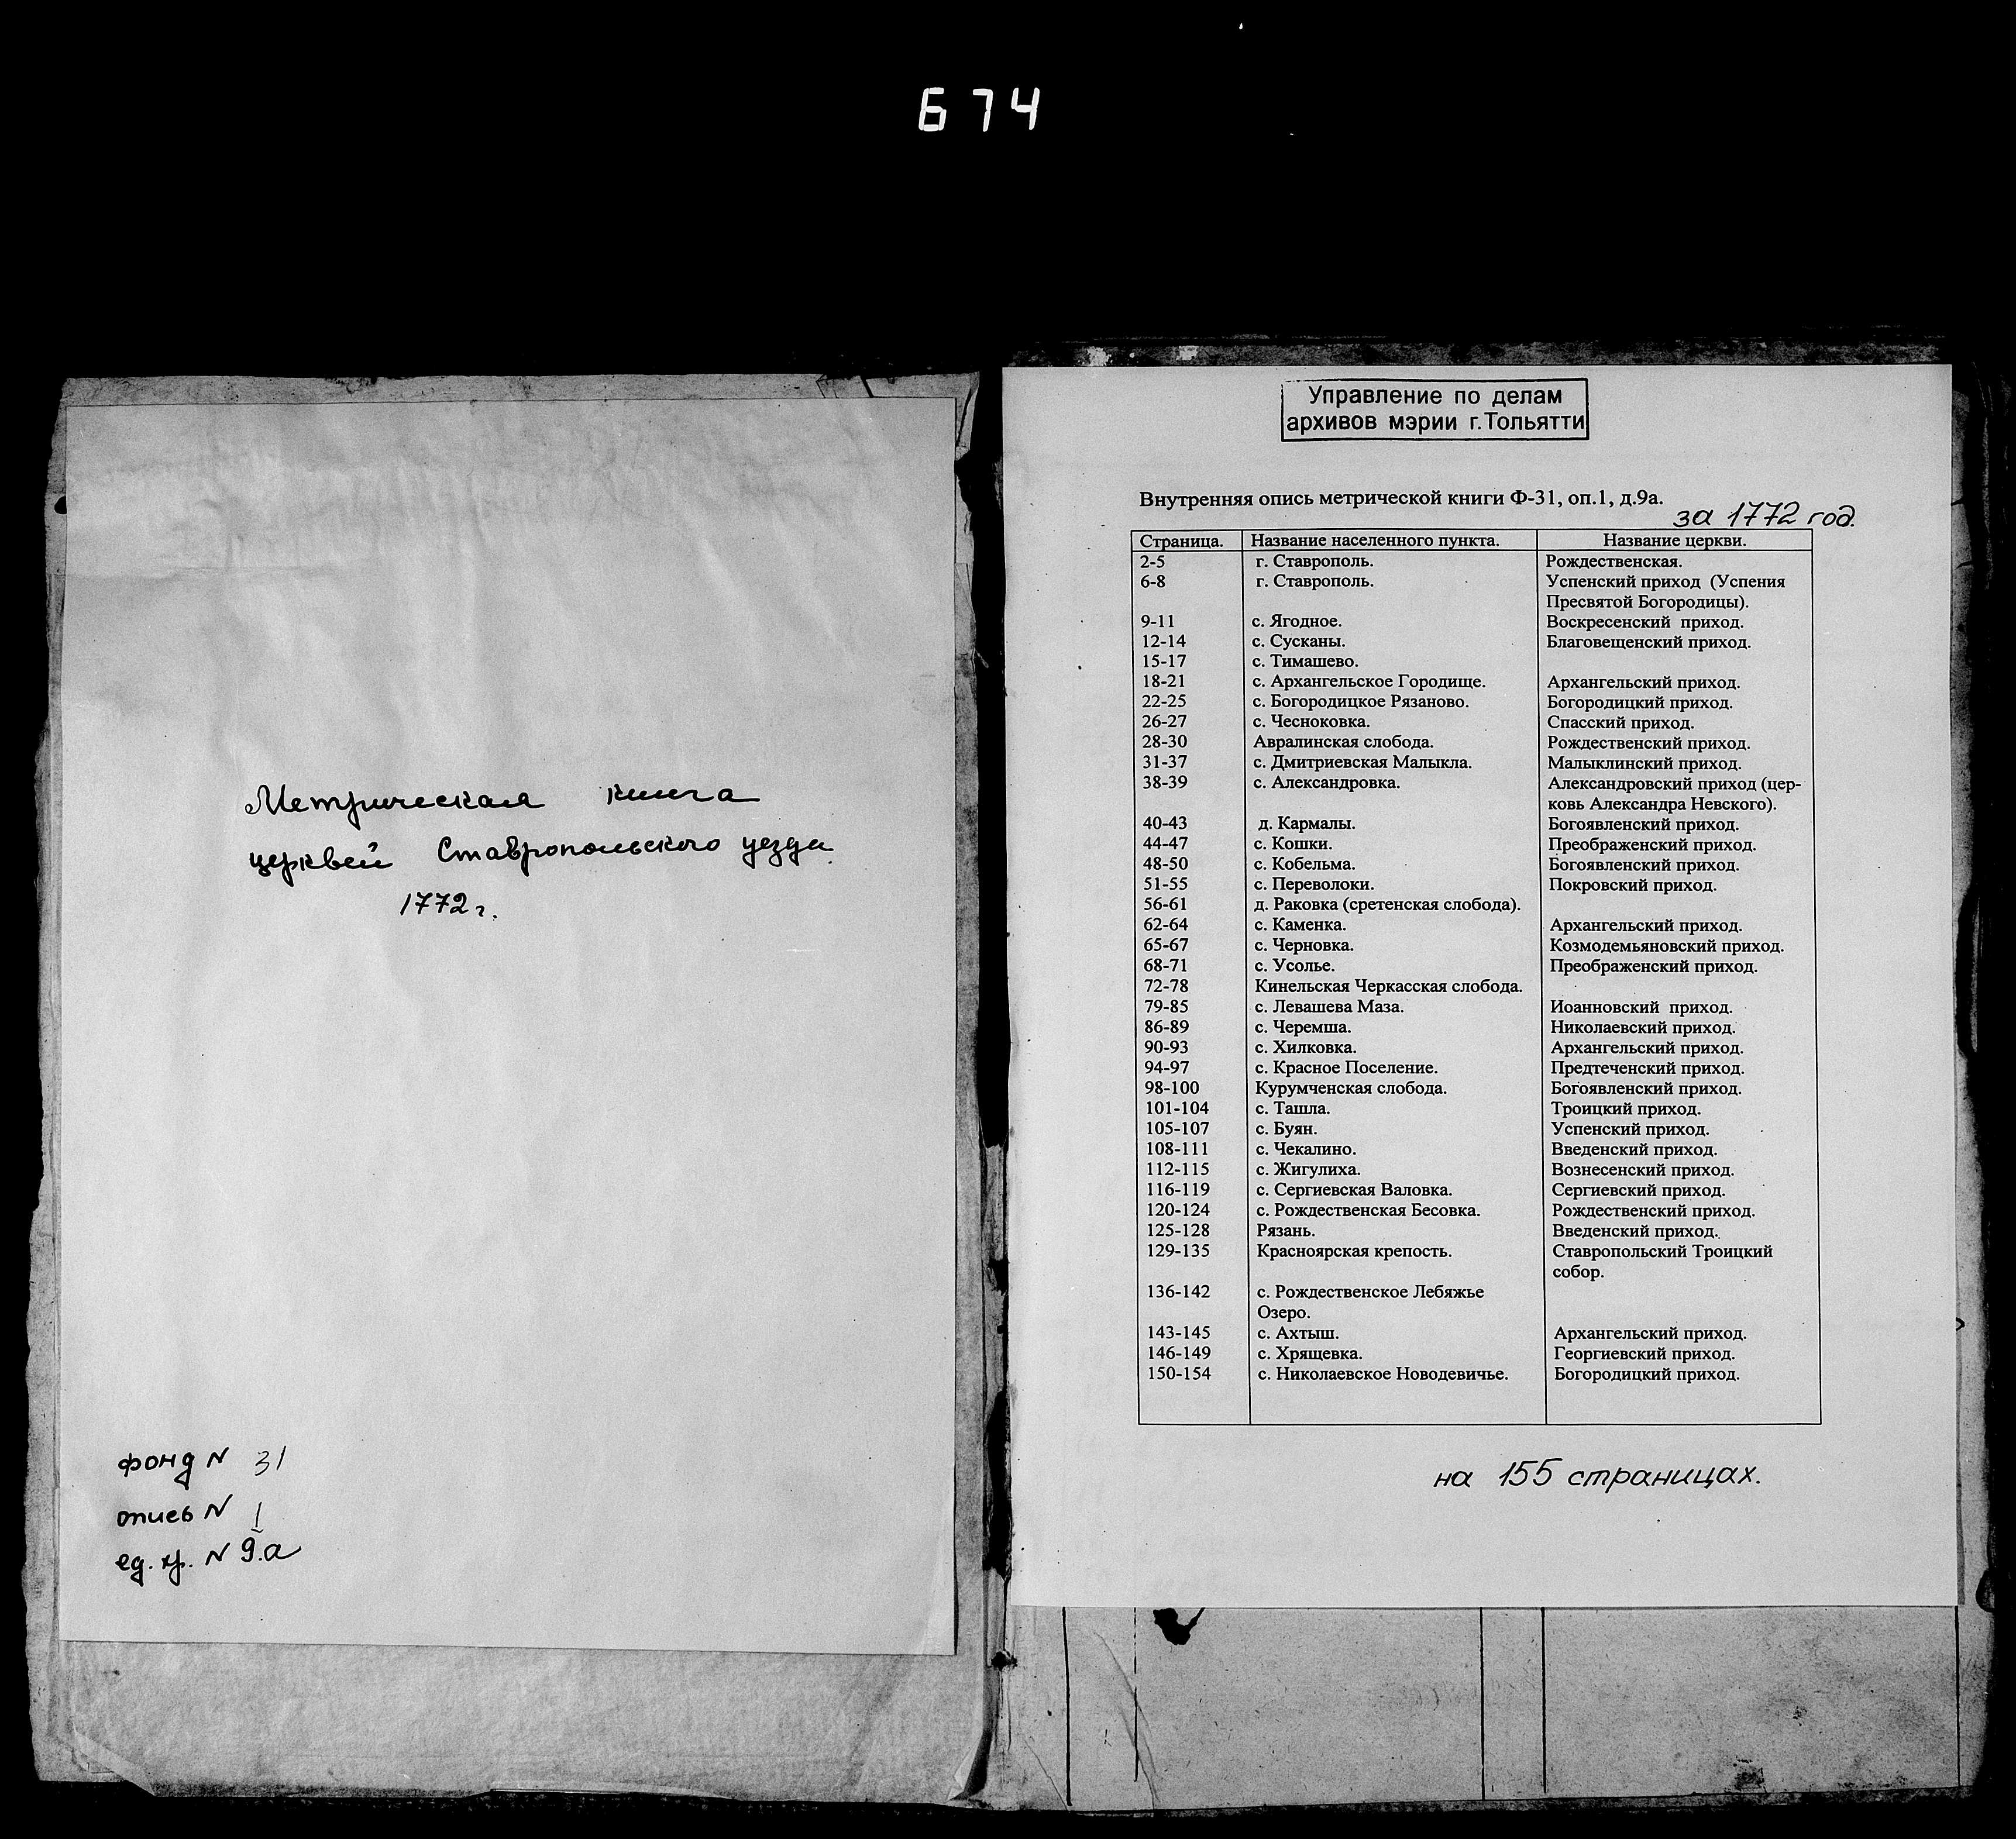 674
Метрическая книга
церквей Ставропольского уезда
1772 г.
фонд N 31
опись N 1
ед. хр. N 9.а
Управление по делам
архивов мэрии г.Тольятти
Внутренняя опись метрической книги Ф-31, оп.1, д.9а.
за 1772 год.
Страница. Название населенного пункта. Название церкви.
2-5 г. Ставрополь. Рождественская.
6-8 г. Ставрополь. Успенский приход (Успения
Пресвятой Богородицы).
9-11 с. Ягодное. Воскресенский приход.
12-14 с. Сусканы. Благовещенский приход.
15-17 с. Тимашево.
18-21 с. Архангельское Городище. Архангельский приход.
22-25 с. Богородицкое Рязаново. Богородицкий приход.
26-27 с. Чесноковка. Спасский приход.
28-30 Авралинская слобода. Рождественский приход.
31-37 с. Дмитриевская Малыкла. Малыклинский приход.
38-39 с. Александровка. Александровский приход (цер-
ковь Александра Невского).
40-43 д. Кармалы. Богоявленский приход.
44-47 с. Кошки. Преображенский приход.
48-50 с. Кобельма. Богоявленский приход.
51-55 с. Переволоки. Покровский приход.
56-61 д. Раковка (сретенская слобода).
62-64 с. Каменка. Архангельский приход.
65-67 с. Черновка. Козмодемьяновский приход.
68-71 с. Усолье. Преображенский приход.
72-78 Кинельская Черкасская слобода.
79-85 с. Левашева Маза. Иоанновский приход.
86-89 с. Черемша. Николаевский приход.
90-93 с. Хилковка. Архангельский приход.
94-97 с. Красное Поселение. Предтеченский приход.
98-100 Курумченская слобода. Богоявленский приход.
101-104 с. Ташла. Троицкий приход.
105-107 с. Буян. Успенский приход.
108-111 с. Чекалино. Введенский приход.
112-115 с. Жигулиха. Вознесенский приход.
116-119 с. Сергиевская Валовка. Сергиевский приход.
120-124 с. Рождественская Бесовка. Рождественский приход.
125-128 Рязань. Введенский приход.
129-135 Красноярская крепость. Ставропольский Троицкий
собор.
136-142 с. Рождественское Лебяжье
Озеро.
143-145 с. Ахтыш. Архангельский приход.
146-149 с. Хрящевка. Георгиевский приход.
150-154 с. Николаевское Новодевичье. Богородицкий приход.
на 155 страницах.